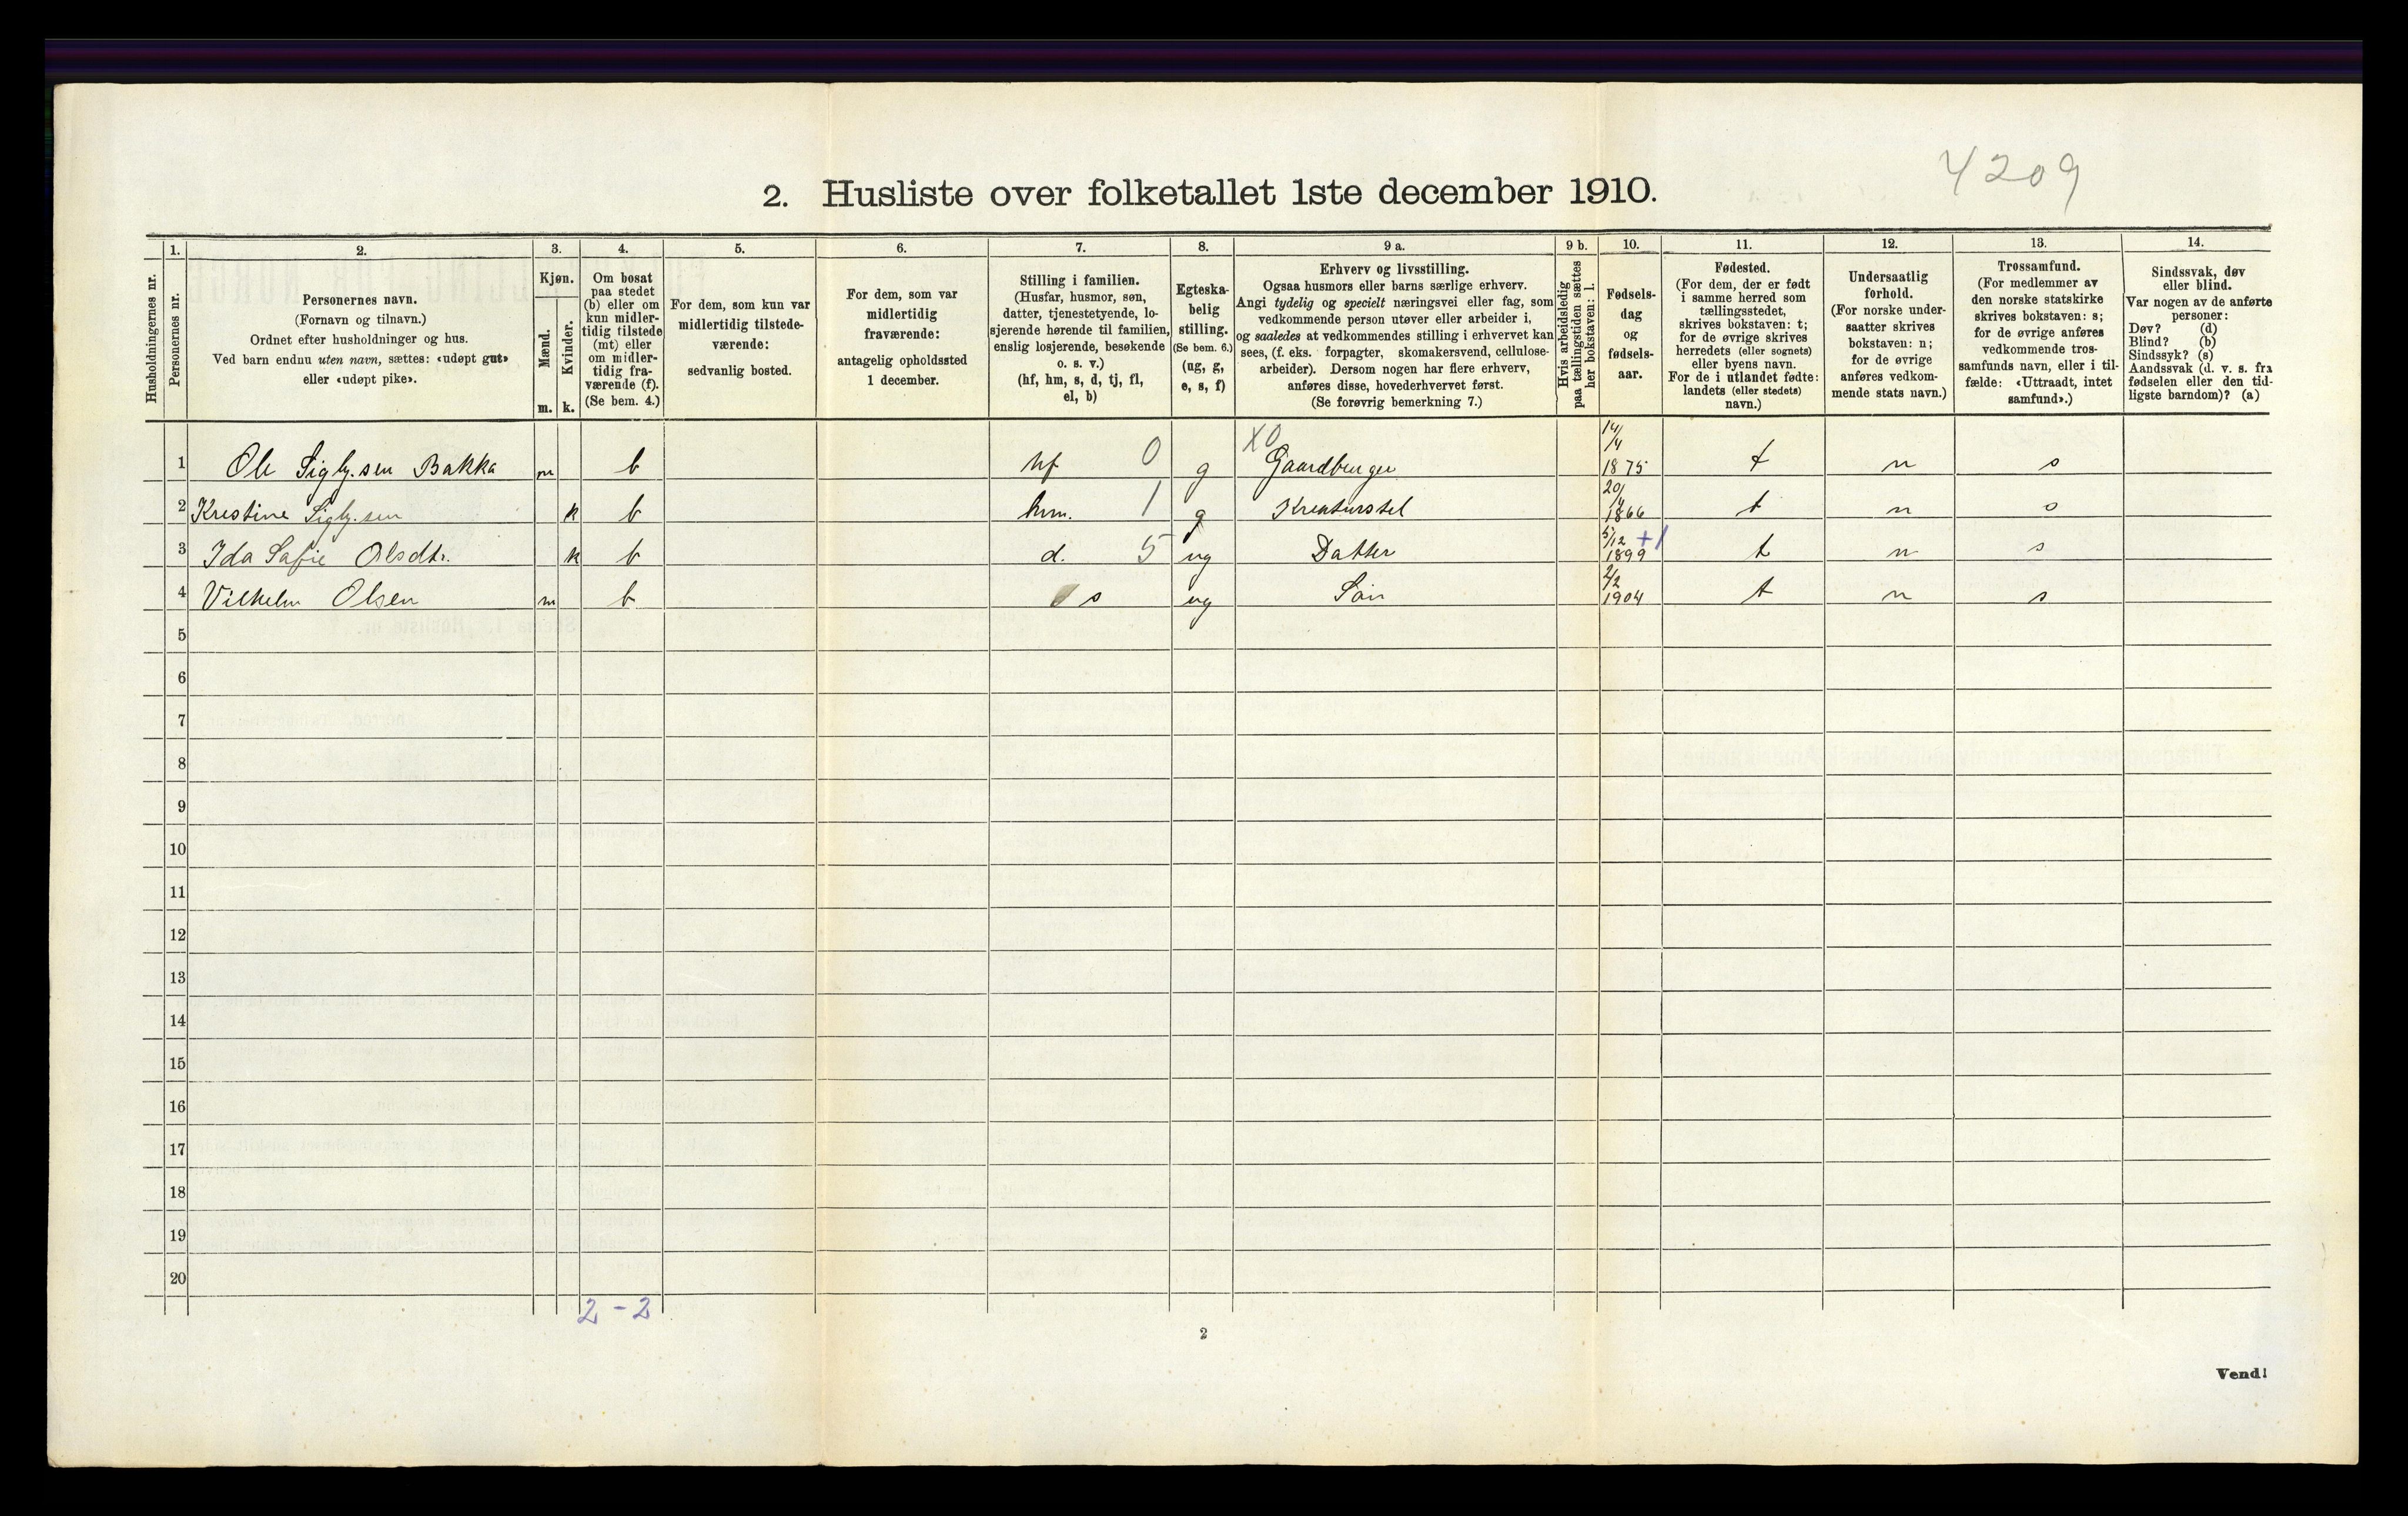 4209
2. Husliste over folketallet 1ste december 1910.
Husholdningernes nr.
1.
Personernes nr.
2.
Personernes navn.
(Fornavn og tilnavn.)
Ordnet efter husholdninger og hus.
Ved barn endnu uten navn, sættes: «udøpt gut»
eller «udøpt pike».
3.
Kjøn.
Mænd.
m.
Kvinder.
k.
4.
Om bosat
paa stedet
(b) eller om
kun midler-
tidig tilstede
(mt) eller
om midler-
tidig fra-
værende (f).
(Se bem. 4.)
5.
For dem, som kun var
midlertidig tilstede-
værende:
sedvanlig bosted.
6.
For dem, som var
midlertidig
fraværende:
antagelig opholdssted
1 december.
7.
Stilling i familien.
(Husfar, husmor, søn,
datter, tjenestetyende, lo-
sjerende hørende til familien,
enslig losjerende, besøkende
o. s. v.)
(hf, hm, s, d, tj, fl,
el, b)
8.
Egteska-
belig
stilling.
(Se bem. 6.)
(ug, g,
e, s, f)
9 a.
Erhverv og livsstilling.
Ogsaa husmors eller barns særlige erhverv.
Angi tydelig og specielt næringsvei eller fag, som
vedkommende person utøver eller arbeider i,
og saaledes at vedkommendes stilling i erhvervet kan
sees, (f. eks. forpagter, skomakersvend, cellulose-
arbeider). Dersom nogen har flere erhverv,
anføres disse, hovederhvervet først.
(Se forøvrig bemerkning 7.)
9 b.
Hvis arbeidsledig
paa tællingstiden sættes
her bokstaven: l.
10.
Fødsels-
dag
og
fødsels-
aar.
11.
Fødested.
(For dem, der er født
i samme herred som
tællingsstedet,
skrives bokstaven: t;
for de øvrige skrives
herredets (eller sognets)
eller byens navn.
For de i utlandet fødte:
landets (eller stedets)
navn.)
12.
Undersaatlig
forhold.
(For norske under-
saatter skrives
bokstaven: n;
for de øvrige
anføres vedkom-
mende stats navn.)
13.
Trossamfund.
(For medlemmer av
den norske statskirke
skrives bokstaven: s;
for de øvrige anføres
vedkommende tros-
samfunds navn, eller i til-
fælde: «Uttraadt, intet
samfund».)
14.
Sindssvak, døv
eller blind.
Var nogen av de anførte
personer:
Døv? (d)
Blind? (b)
Sindssyk? (s)
Aandssvak (d. v. s. fra
fødselen eller den tid-
ligste barndom)? (a)
1 Ole Sigbj.sen Bakka m b hf 0 g X0 Gaardbruger 14/4 1875 t n s
2 Krestine Sigbj.sen k b hm. 1 g Kreaturstel 20/4 1866 t n s
3 Ida Safie Olsdtr. k b d. 5 ug Datter 5/12 +1 1899 t n s
4 Vilhelm Olsen m b s ug Sön 2/2 1904 t n s
5
6
7
8
9
10
11
12
13
14
15
16
17
18
19
20
2 - 2
2
Vend!